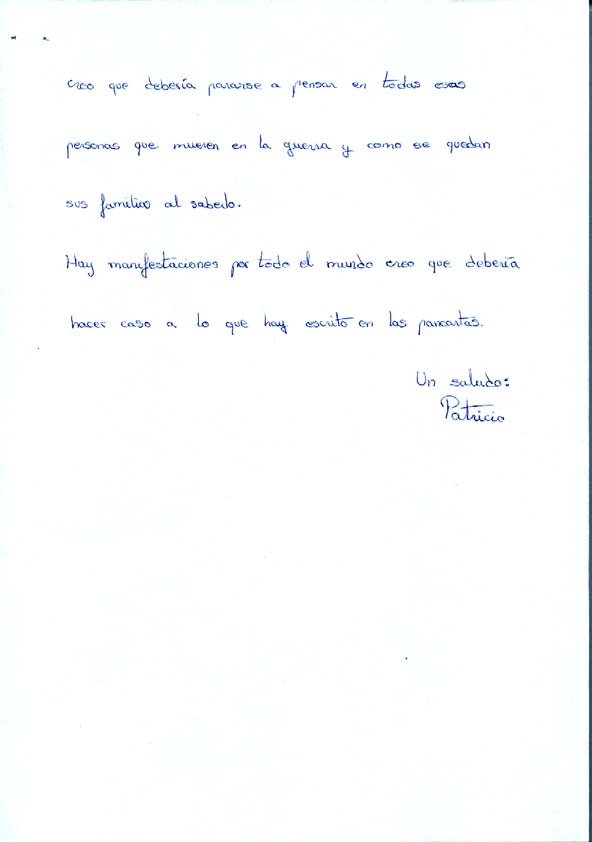 creo que debería pararse a pensar en todas esas
personas que mueren en la guerra y como se quedan
sus familias al saberlo.
Hay manifestaciones por todo el mundo creo que debería
hacer caso a lo que hay escrito en las pancartas.
Un saludo:
Patricio